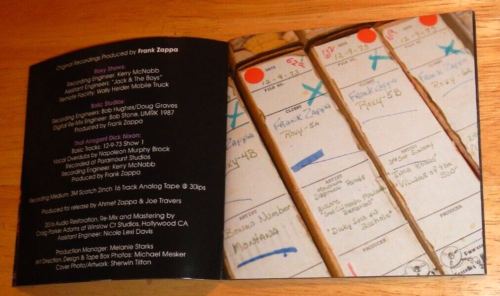 Original Recordings Produced by Frank Zappa
Roxy Shows:
Recording Engineer: Kerry McNabb
Assistant Engineers: "Jack & The Boys"
Remote Facility: Wally Heider Mobile Truck
Bolic Studios:
Recording Engineers: Bob Hughes/Doug Graves
Digital Re-Mix Engineer: Bob Stone, UMRK 1987
Produced by Frank Zappa
That Arrogant Dick Nixon:
Basic Tracks: 12-9-73 Show 1
Vocal Overdubs by Napoleon Murphy Brock
Recorded at Paramount Studios
Recording Engineer: Kerry McNabb
Produced by Frank Zappa
Recording Medium: 3M Scotch 2inch 16 Track Analog Tape @ 30ips
Produced for release by Ahmet Zappa & Joe Travers
2016 Audio Restoration, Re-Mix and Mastering by
Craig Parker Adams at Winslow Ct Studios, Hollywood CA
Assistant Engineer: Nicole Lexi Davis
Production Manager: Melanie Starks
Art Direction, Design & Tape Box Photos: Michael Mesker
Cover Photo/Artwork: Sherwin Tilton
ZAPPA
Roxy-4B
ARTIST
Number
MONTANA
DATE
12-9-73
CLIENT
FRANK ZAPPA
Roxy-5A
ARTIST
"Dickie's Such An Asshole"
PRODUCER
DATE
12-9-73
CLIENT
FRANK ZAPPA
Roxy-5B
ARTIST
PRODUCER
12-9-73
FRANK ZAPPA
Roxy-